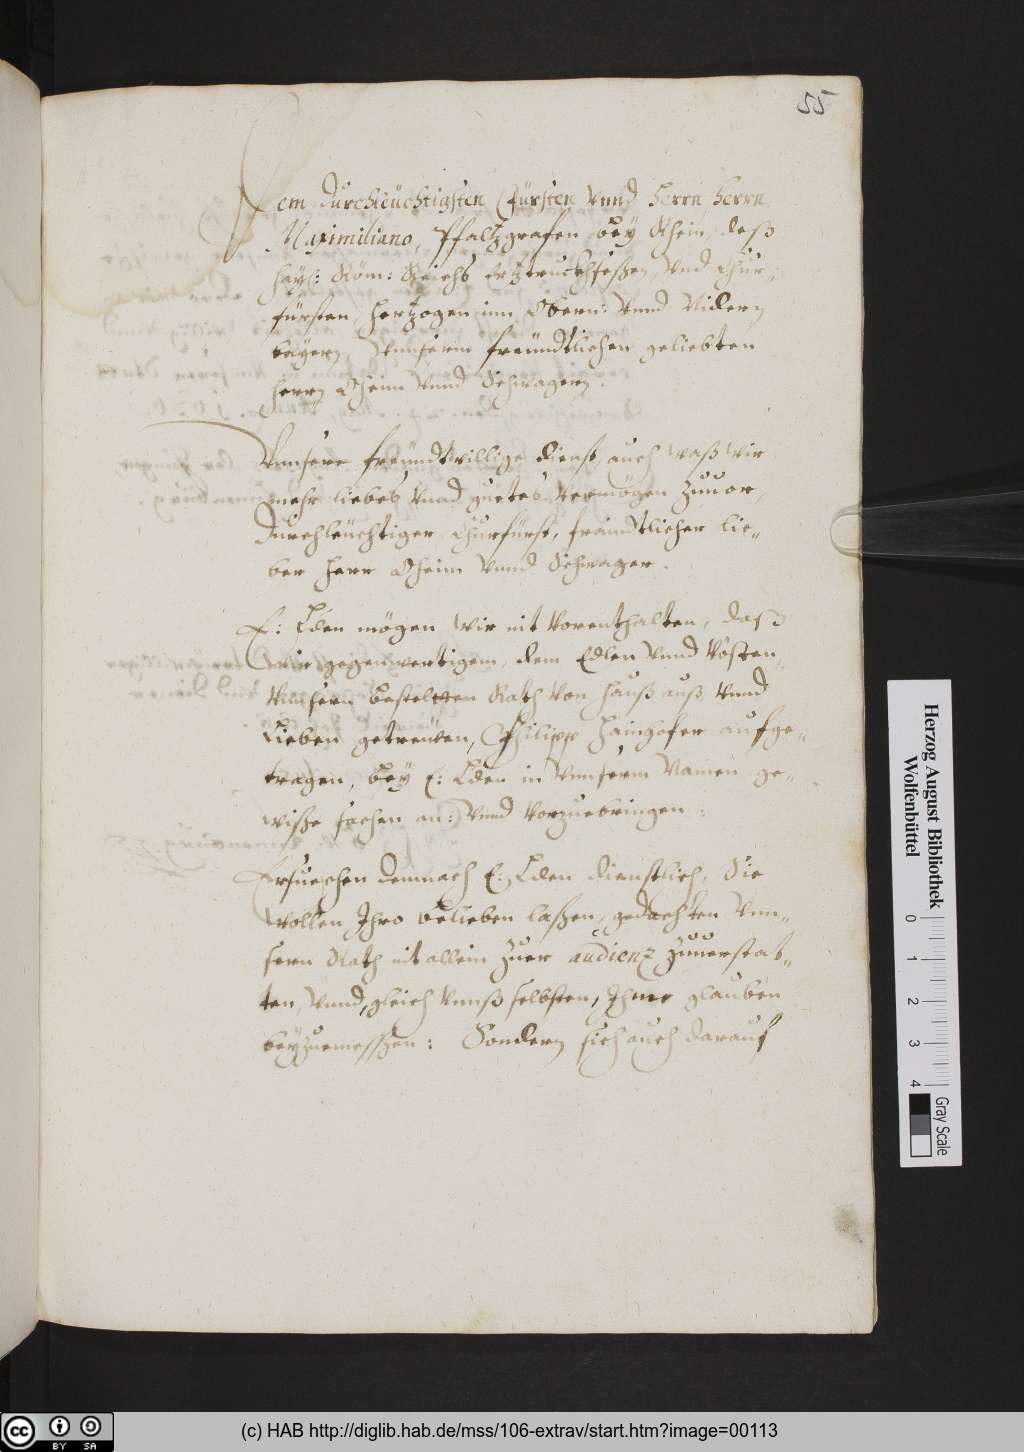 55
Dem Durchleüchtigsten Fürsten Vnnd Herrn, Herrn
Maximiliano, Pfaltzgrafen beÿ Rhein, deß
Hay: Röm: Reichs Ertztruckhseßen, Vnd Chur-
fürsten, Hertzogen inn Obern: Vnnd Nidern
baÿern, Vnnserm freündtlichen geliebten
Herrn Oheim Vnnd Schwagern.
Vnnsere freündtwillige dienst auch waß wir
mehr liebes Vnnd guetes Vermögen zuuor,
Durchleüchtiger Churfürst, freündtlicher lie-
ber Herr Oheim Vnnd Schwager.
E: Lden mögen wir nit Vorenthalten, daß
wir gegenwertigem, dem Edlen Vnnd Vösten,
Vnsern bestelten Rath von Hauß auß Vnnd
Lieben getreüen, Philipp Hainhofer aufge-
tragen, beÿ E: Lden in Vnnserm Namen ge-
wiße sachen an: Vnnd Vorzuebringen:
Ersuechen demnach E: Lden dienstlich, Sie
wollen Ihro belieben laßen, gedachten Vnn-
sern Rath nit allein Zuer audienz Zuuerstat-
ten, Vnnd, gleich Vnnß selbsten, Ihme glauben
beÿzuemeßen: Sondern sich auch darauf
Herzog August Bibliothek
Wolfenbüttel
0 1 2 3 4
Gray Scale
cc BY SA
(c) HAB http://diglib.hab.de/mss/106-extrav/start.htm?image=00113